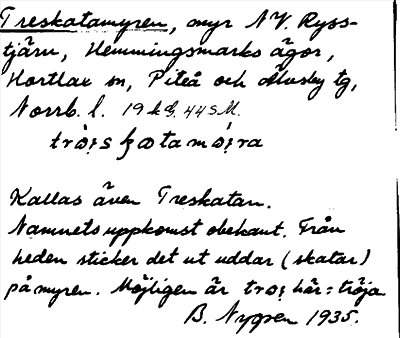 Treskatamyren, myr NV. Ryss-
tjärn, Hemmingsmarks ägor,
Hortlax sn, Piteå och Älvsby tg,
Norrb. l. 19 44 S.M.
Kallas även Treskatan.
Namnets uppkomst obekant. Från
heden sticker det ut uddar (skatar)
på myren. Möjligen är här = tröja
B. Nygren 1935.